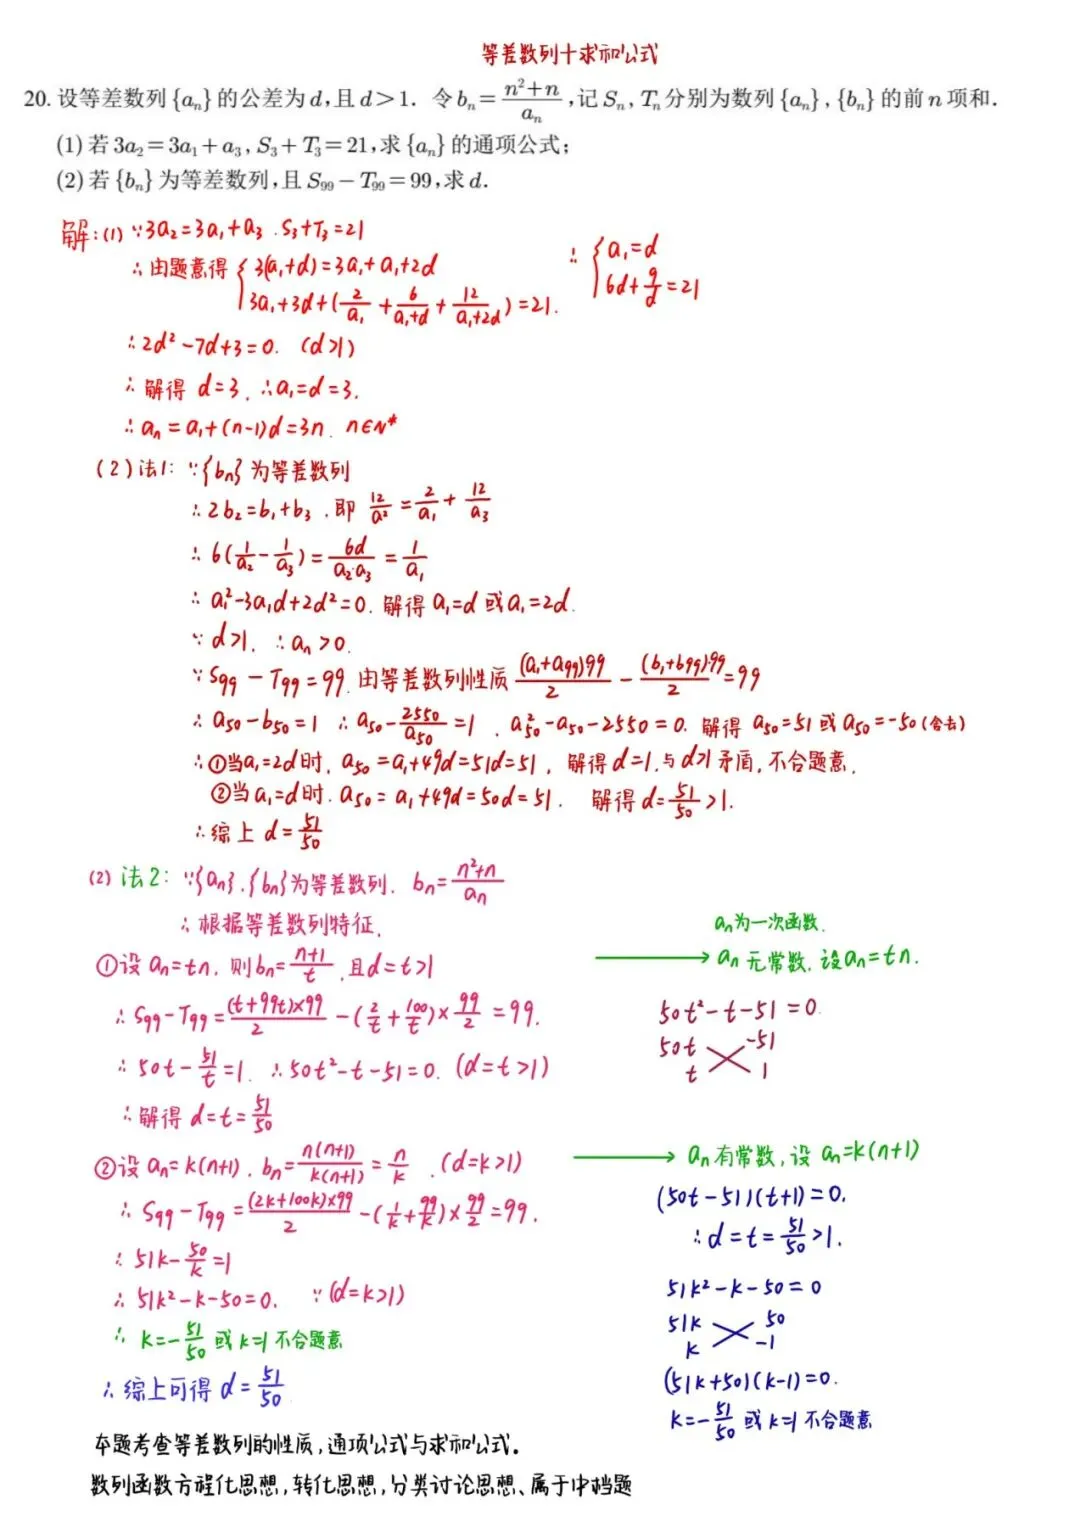 等差数列+求和公式
20. 设等差数列{aₙ}的公差为d,且d>1. 令bₙ=(n²+n)/aₙ,记Sₙ,Tₙ分别为数列{aₙ},{bₙ}的前n项和.
(1)若3a₂=3a₁+a₃,S₃+T₃=21,求{aₙ}的通项公式;
(2)若{bₙ}为等差数列,且S₉₉-T₉₉=99,求d.
解:(1) ∵3a₂=3a₁+a₃. S₃+T₃=21
∴由题意得 { 3(a₁+d)=3a₁+a₁+2d
3a₁+3d+(2/a₁+6/(a₁+d)+12/(a₁+2d))=21.
∴ { a₁=d
6d+9/d=21
∴2d²-7d+3=0. (d>1)
∴解得 d=3. ∴a₁=d=3.
∴aₙ=a₁+(n-1)d=3n. n∈N*
(2)法1: ∵{bₙ}为等差数列
∴2b₂=b₁+b₃.即 12/a²=2/a₁+12/a₃
∴6(1/a₂-1/a₃)=6d/(a₂·a₃)=1/a₁
∴a₁²-3a₁d+2d²=0.解得a₁=d或a₁=2d.
∵d>1. ∴aₙ>0.
∵S₉₉-T₉₉=99.由等差数列性质 (a₁+a₉₉)99/2-(b₁+b₉₉)99/2=99
∴a₅₀-b₅₀=1 ∴a₅₀-2550/a₅₀=1. a₅₀²-a₅₀-2550=0.解得 a₅₀=51或a₅₀=-50(舍去)
∴①当a₁=2d时. a₅₀=a₁+49d=51d=51, 解得d=1.与d>1矛盾,不合题意.
②当a₁=d时. a₅₀=a₁+49d=50d=51. 解得d=51/50>1.
∴综上 d=51/50
(2) 法2: ∵{aₙ}.{bₙ}为等差数列. bₙ=(n²+n)/aₙ
∴根据等差数列特征.
aₙ为一次函数.
①设aₙ=tn. 则bₙ=(n+1)/t.且d=t>1
→aₙ无常数.设aₙ=tn.
∴S₉₉-T₉₉=(t+99t)×99/2-(2/t+100/t)×99/2=99.
∴50t-51/t=1. ∴50t²-t-51=0. (d=t>1)
∴解得 d=t=51/50
50t²-t-51=0.
50t -51
t 1
②设aₙ=k(n+1). bₙ=n(n+1)/k(n+1)=n/k. (d=k>1)
→aₙ有常数,设 aₙ=k(n+1)
∴S₉₉-T₉₉=(2k+100k)×99/2-(1/k+99/k)×99/2=99.
∴51k-50/k=1
∴51k²-k-50=0. ∵(d=k>1)
∴k=-51/50或k=1不合题意
∴综上可得 d=51/50.
(50t-51)(t+1)=0.
∴d=t=51/50>1.
51k²-k-50=0
51k 50
k -1
(51k+50)(k-1)=0.
k=-51/50或k=1不合题意
本题考查等差数列的性质,通项公式与求和公式.
数列函数方程化思想,转化思想,分类讨论思想、属于中档题